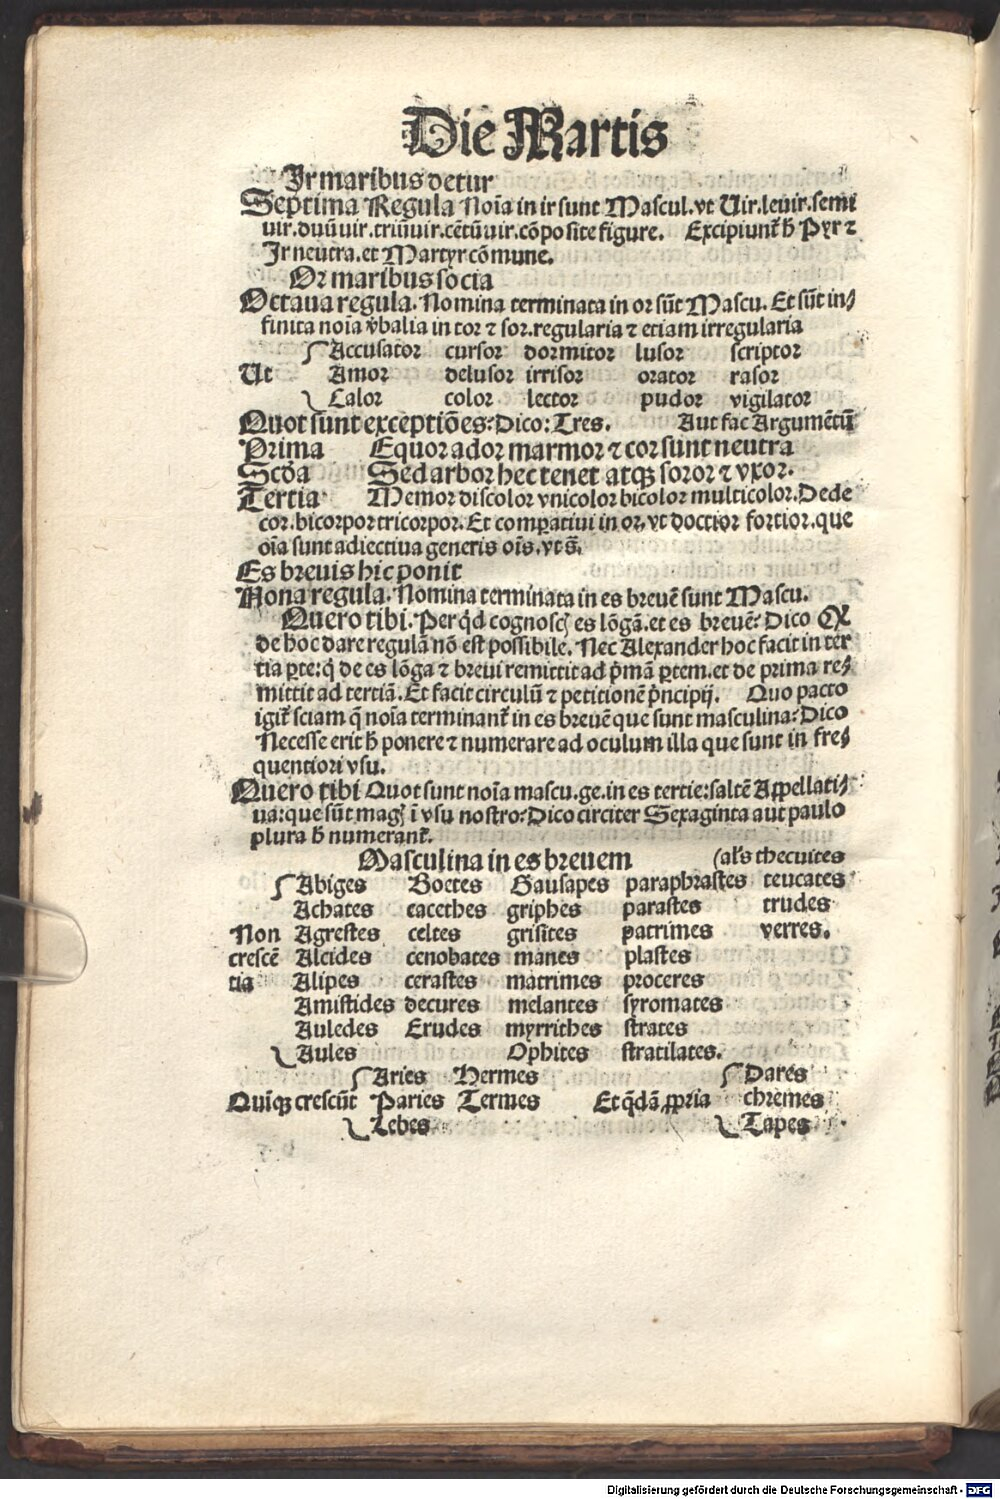 Die Martis
Ir maribus detur
Septima Regula Noīa in ir sunt Mascul. vt Uir. leuir. semi
uir. duūuir. triūuir. cētūuir. cōposite figure. Excipiunt̄ h̄ Pyr ⁊
Ir neutra. et Martyr cōmune.
Or maribus socia
Octaua regula. Nomina terminata in or sūt Mascu. Et sūt in⸗
finita noīa v̄balia in tor ⁊ sor. regularia ⁊ etiam irregularia
Accusator cursor dormitor lusor scriptor
Ut Amor delusor irrisor orator rasor
Calor color lector pudor vigilator
Quot sunt exceptiōes: Dico: Tres. Aut fac Argumētū
Prima Equor ador marmor ⁊ cor sunt neutra
Scōa Sed arbor hec tenet atqꝫ soror ⁊ vxor.
Tertia Memor discolor vnicolor bicolor multicolor. Dede
cor. bicorpor tricorpor. Et comꝑatiui in or. vt doctior fortior. que
oīa sunt adiectiua generis oīs. vt s̄.
Es breuis hic ponit
Nona regula. Nomina terminata in es breuē sunt Mascu.
Quero tibi. Per qd̄ cognoscꝭ es lōgā. et es breuē? Dico Qꝫ
de hoc dare regulā nō est possibile. Nec Alexander hoc facit in ter
tia ꝑte: q̄ de es lōga ⁊ breui remittit ad p̄mā ꝑtem. et de prima re⸗
mittit ad tertiā. Et facit circulū ⁊ petitionē p̄ncipij. Quo pacto
igit̄ sciam q̄ noīa terminant̄ in es breuē que sunt masculina? Dico
Necesse erit h̄ ponere ⁊ numerare ad oculum illa que sunt in fre⸗
quentiori vsu.
Quero tibi Quot sunt noīa mascu. ge. in es tertie: saltē Appellati⸗
ua: que sūt magꝭ ī vsu nostro? Dico circiter Sexaginta aut paulo
plura h̄ numerant̄.
Masculina in es breuem (al's thecuites
Abiges Boetes Gausapes paraphrastes teucates
Achates cacethes griphes parastes trudes
Non Agrestes celtes grisites patrimes verres.
crescē Alcides cenobates manes plastes
tia Alipes cerastes matrimes proceres
Amistides decures melantes syromates
Auledes Erudes myrrithes strates
Aules Ophites stratilates.
Aries Hermes Dares
Quīqꝫ crescūt Paries Termes Et qdā ꝓpria chremes
Lebes Tapes
Digitalisierung gefördert durch die Deutsche Forschungsgemeinschaft - DFG